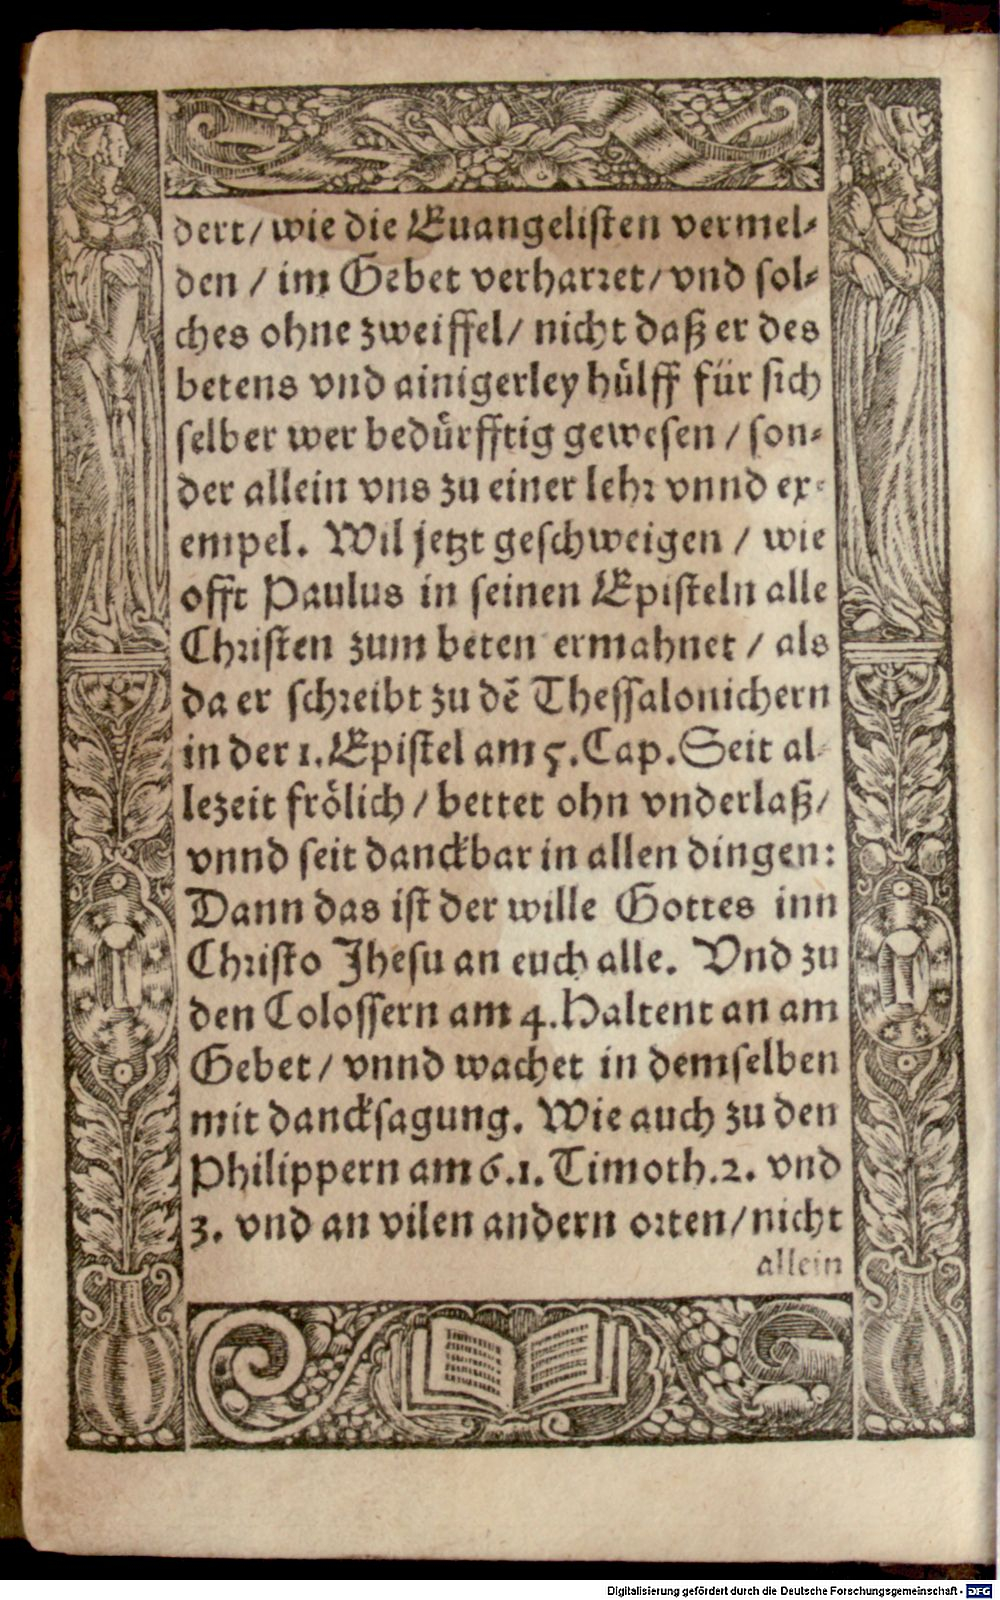 dert/ wie die Euangelisten vermel-
den / im Gebet verharret/ vnd sol-
ches ohne zweiffel/ nicht daß er des
betens vnd ainigerley hülff für sich
selber wer bedürfftig gewesen / son-
der allein vns zu einer lehr vnnd ex-
empel. Wil jetzt geschweigen / wie
offt Paulus in seinen Episteln alle
Christen zum beten ermahnet / als
da er schreibt zu dē Thessalonichern
in der 1. Epistel am 5. Cap. Seit al-
lezeit frölich / bettet ohn vnderlaß/
vnnd seit danckbar in allen dingen:
Dann das ist der wille Gottes inn
Christo Jhesu an euch alle. Vnd zu
den Colossern am 4. Haltent an am
Gebet/ vnnd wachet in demselben
mit dancksagung. Wie auch zu den
Philippern am 6. 1. Timoth. 2. vnd
3. vnd an vilen andern orten/ nicht
allein
Digitalisierung gefördert durch die Deutsche Forschungsgemeinschaft - DFG